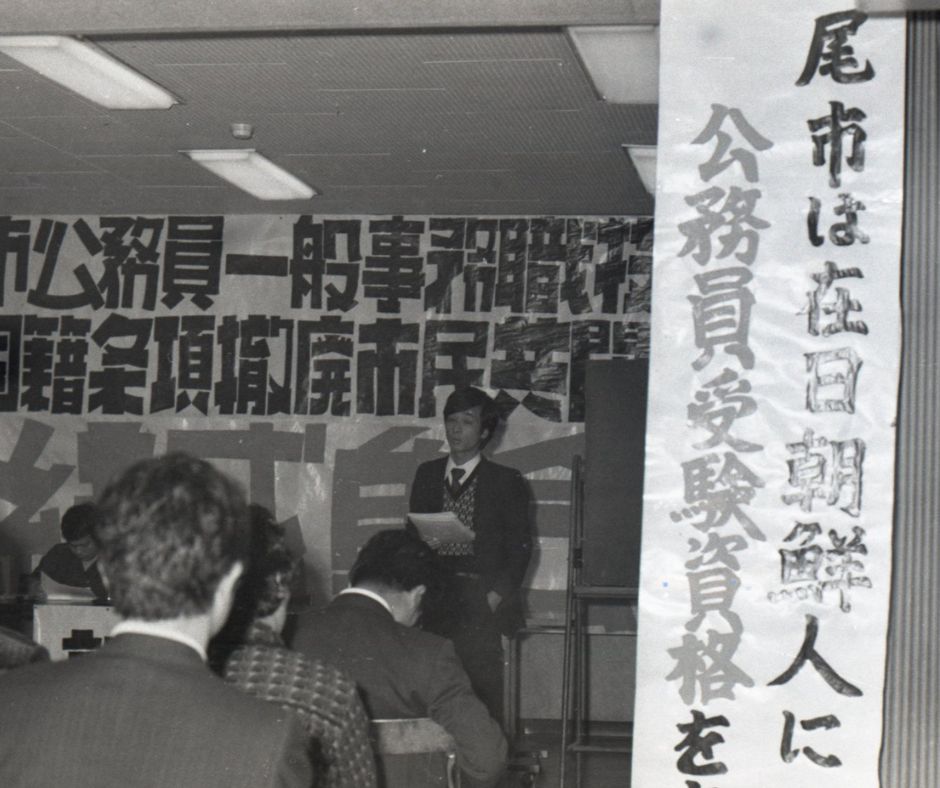 尾市は在日朝鮮人に
公務員受験資格を
市公務員一般事務職
籍条項撤廃市民
総